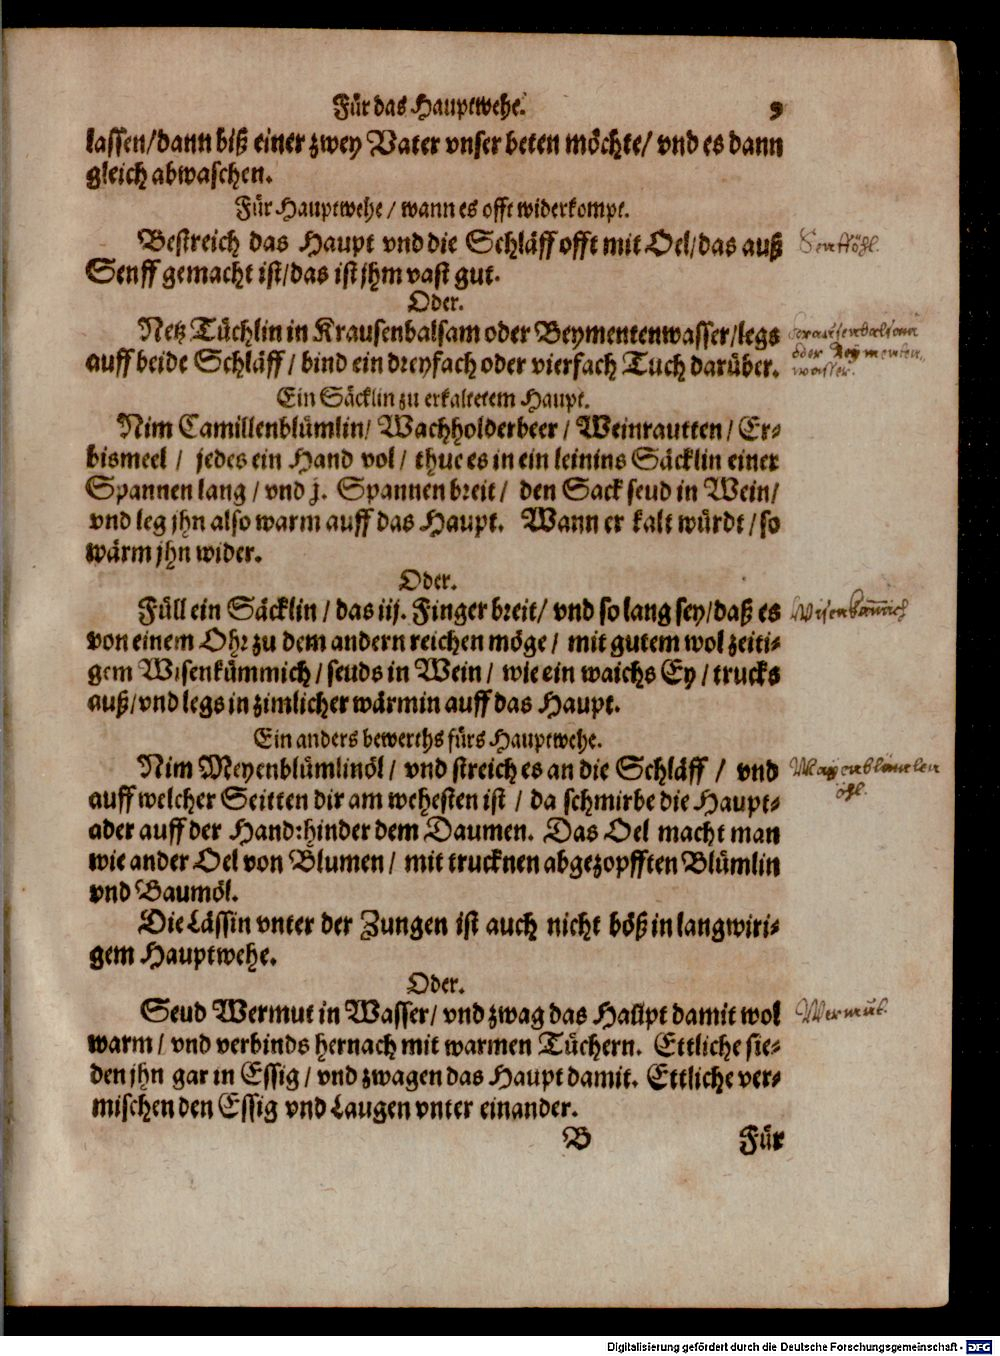 Für das Hauptwehe. 9
lassen/dann biß einer zwey Vater vnser beten möchte/ vnd es dann
gleich abwaschen.
Für Hauptwehe / wann es offt widerkompt.
Bestreich das Haupt vnd die Schläff offt mit Oel/das auß
Senfföhl.
Senff gemacht ist/das ist jhm vast gut.
Oder.
Netz Tüchlin in Krausenbalsam oder Beymentenwasser/legs
auff beide Schläff / bind ein dreyfach oder vierfach Tuch darüber.
oder Beymenten
wasser.
Ein Säcklin zu erkaltetem Haupt.
Nim Camillenblümlin/ Wachholderbeer / Weinrautten / Er-
bismeel / jedes ein Hand vol / thue es in ein leinins Säcklin einer
Spannen lang / vnd j. Spannen breit / den Sack seud in Wein/
vnd leg jhn also warm auff das Haupt. Wann er kalt würdt / so
wärm jhn wider.
Oder.
Füll ein Säcklin / das iij. Finger breit/ vnd so lang sey/daß es
von einem Ohr zu dem andern reichen möge / mit gutem wol zeiti-
gem Wisenkümmich / seuds in Wein / wie ein waichs Ey / trucks
auß/vnd legs in zimlicher wärmin auff das Haupt.
Ein anders bewerths fürs Hauptwehe.
Nim Meyenblümlinöl / vnd streich es an die Schläff / vnd
Mayenblümlen
öhl.
auff welcher Seitten dir am wehesten ist / da schmirbe die Haupt-
ader auff der Hand:hinder dem Daumen. Das Oel macht man
wie ander Oel von Blumen / mit trucknen abgezopfften Blümlin
vnd Baumöl.
Die Lässin vnter der Zungen ist auch nicht böß in langwiri-
gem Hauptwehe.
Oder.
Seud Wermut in Wasser/ vnd zwag das Haupt damit wol
Wermut.
warm / vnd verbinds hernach mit warmen Tüchern. Ettliche sie-
den jhn gar in Essig / vnd zwagen das Haupt damit. Ettliche ver-
mischen den Essig vnd Laugen vnter einander.
B Für
Digitalisierung gefördert durch die Deutsche Forschungsgemeinschaft - DFG